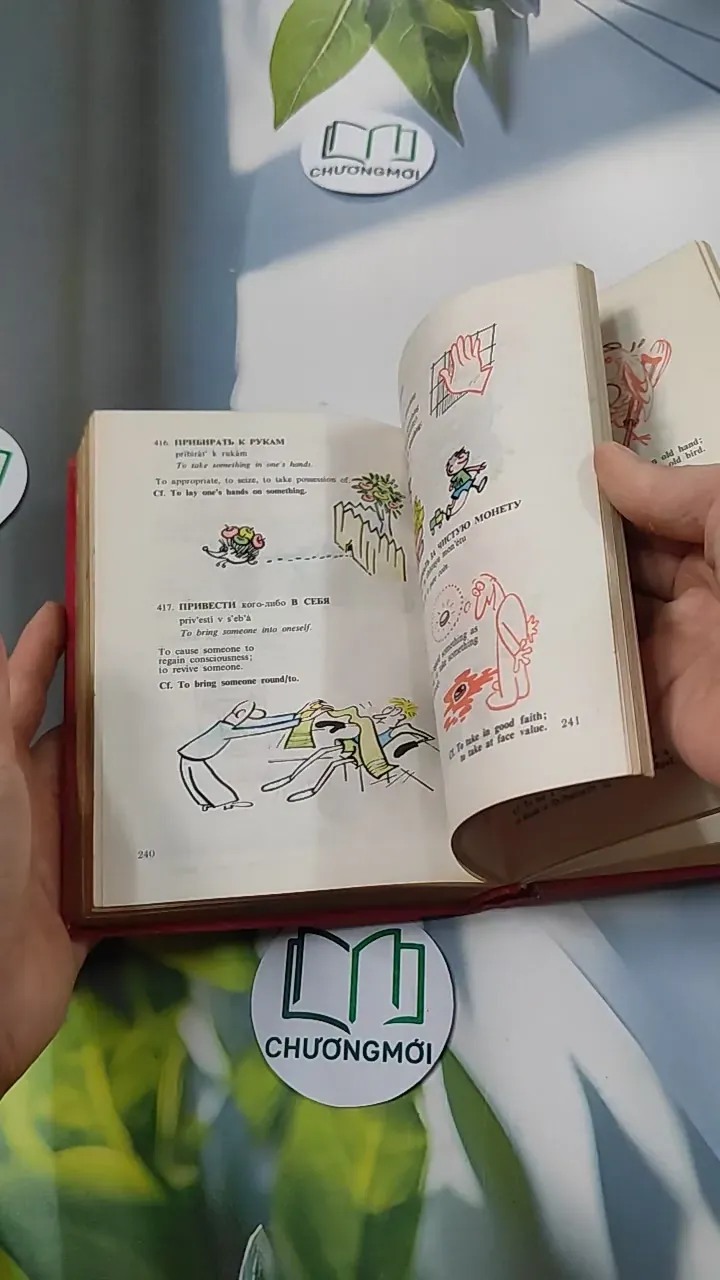 CHƯƠNGMỚI
416. ПРИБИРАТЬ К РУКАМ
pribirát' k rukám
To take something in one's hands.
To appropriate, to seize, to take possession of.
Cf. To lay one's hands on something.
417. ПРИВЕСТИ кого-либо В СЕБЯ
priv'estí v s'eb'á
To bring someone into oneself.
To cause someone to
regain consciousness;
to revive someone.
Cf. To bring someone round/to.
240
ЗА ЧИСТУЮ МОНЕТУ
mon'étu
something as
something
Cf. To take in good faith;
to take at face value.
241
old hand;
old bird.
CHƯƠNGMỚI